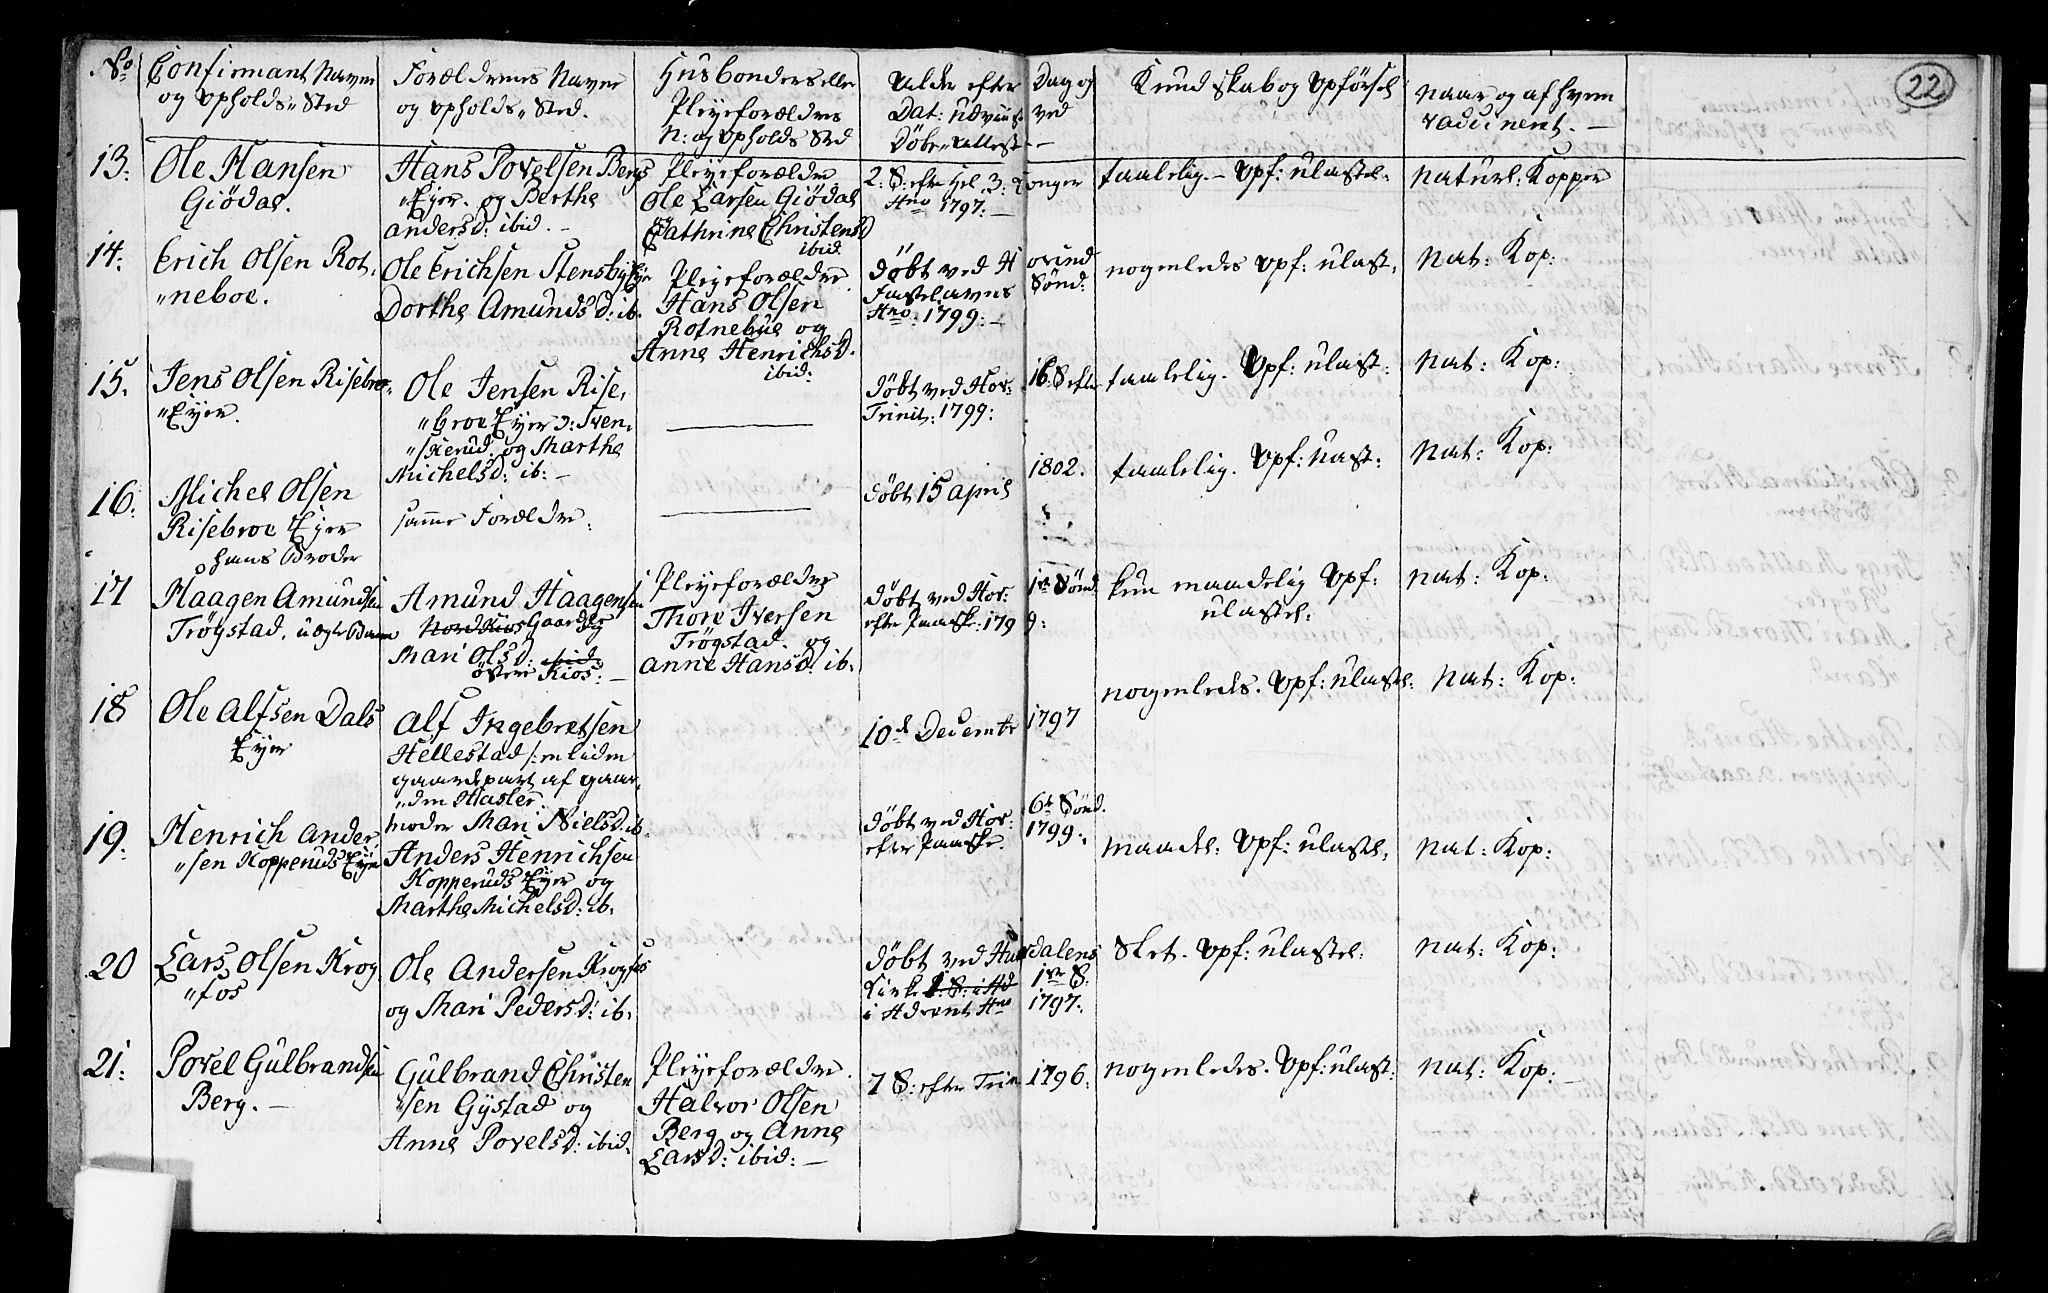 22
No Confirmant Navn og Opholds„ Sted
Forældrenes Navne og Opholds„ Sted.
Husbonders eller Pleyeforældres N: og Opholds Sted
Alder efter Dag og Dat: udviist ved Döbe„ Attest —
Kundskab og Opförsel
Naar og af hvem vaccineret. —
13. Ole Hansen
Giödal.
Hans Povelsen Bergs
„Eyer. og Berthe
Andersd: ibid. —
Pleyeforældre
Ole Larsen Giödal
Cathrine Christensd
ibid.
2: S: efter Hel. 3: Konger
Ano 1797. —
taalelig. — Opf: ulastel:
Naturl: Kopper
14: Erich Olsen Rot„
„neboe.
Ole Erichsen Stensby Eyer
Dorthe Amundsd: ib.
Pleyeforældre.
Hans Olsen
Rotnebue og
Anne Henrichsd.
ibid:
döbt ved Hovind
Fastelavns Sönd:
Ano: 1799: —
nogenledes Opf: ulast:
Nat: Kop:
15. Jens Olsen Risebroe
„Eyer.
Ole Jensen Rise„
„broe Eyer
„skerud. og Marthe
Michelsd: ib: —
döbt ved Hov: 16 S efter
Trinit: 1799:
taalelig. Opf: ulast:
Nat: Kop:
16: Michel Olsen
Risebroe Eyer
hans Broder
samme Forældre.
döbt 15 April 1802.
taalelig. Opf: ulast:
Nat: Kop:
17 Haagen Amundsen
Trögstad, uægte Barn
Amund Haagensen
Nord Kios Gaard og
Mari Olsd: ibid.
övere Kios: —
Pleyeforældre
Thore Iversen
Trögstad. og
Anne Hansd: ib.
döbt ved Hov: 1ste Sönd
efter Paaske: 1799:
kun maadelig Opf:
ulastel.
Nat: Kop:
18 Ole Alfsen Dals
Eyer
Alf Ingebretsen
Hellestad /: en liden
gaardepart af gaar„
„den Hasler.
moder Mari Nielsd: ib.
10d Decembr 1797
nogenledes. Opf: ulastel:
Nat: Kop:
19. Henrich Ander„
„sen Kopperuds Eyer
Anders Henrichsen
Kopperuds Eyer og
Marthe Michelsd: ib.
döbt ved Hov: 6te Sönd.
efter Paaske. 1799:
maadel: Opf: ulastel.
Nat: Kop:
20 Lars Olsen Krog„
„fos
Ole Andersen Krogfos
og Mari Pedersd: ib.
döbt ved Hurdalens
Kirke 1: S: i Ad 1ste S:
i Advent Ano 1797:
Slet. Opf: ulastel:
Nat: Kop:
21: Povel Gulbrandsen
Berg. —
Gulbrand Christen
„sen Gystad og
Anne Povelsd: ibid.
Pleyeforældre.
Halvor Olsen
Berg og Anne
Larsd: ibid: —
7 S: efter Trin 1796:
nogenledes. Opf: ulast:
Nat: Kop: —